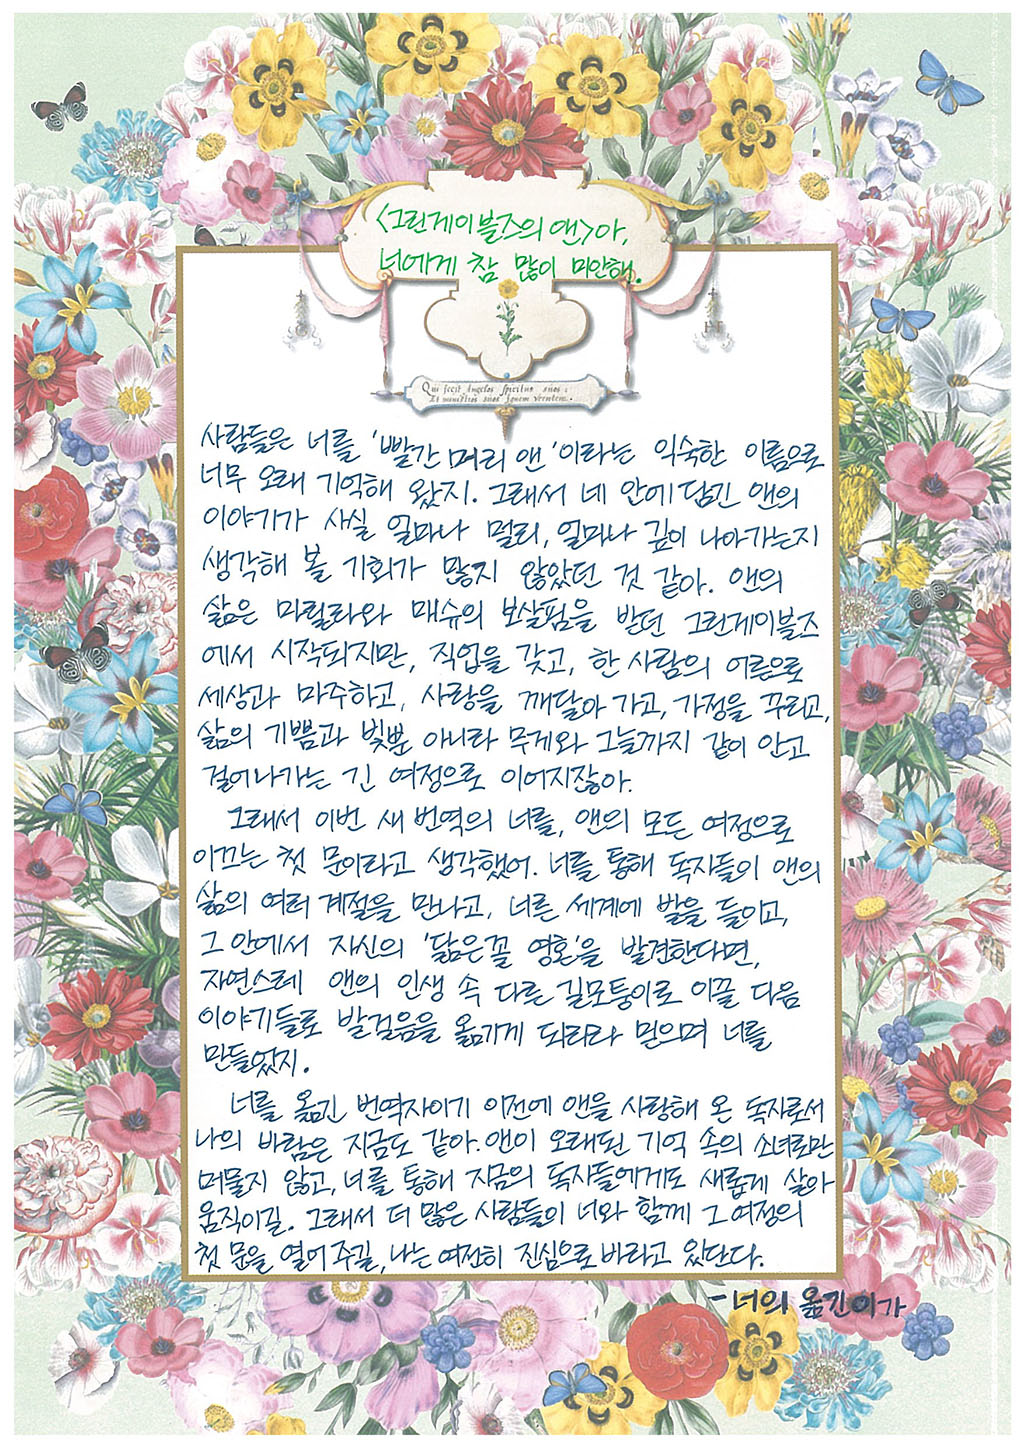 <그린게이블즈의 앤>아,
너에게 참 많이 미안해.
Qui fecit Angelos spiritus suos:
Et ministros suos ignem urentem.
사람들은 너를 '빨간 머리 앤'이라는 익숙한 이름으로
너무 오래 기억해 왔지. 그래서 네 안에 담긴 앤의
이야기가 사실 얼마나 멀리, 얼마나 깊이 나아가는지
생각해 볼 기회가 많지 않았던 것 같아. 앤의
삶은 마릴라와 매슈의 보살핌을 받던 그린게이블즈
에서 시작되지만, 직업을 갖고, 한 사람의 어른으로
세상과 마주하고, 사랑을 깨달아 가고, 가정을 꾸리고,
삶의 기쁨과 빛뿐 아니라 무게와 그늘까지 같이 안고
걸어나가는 긴 여정으로 이어지잖아.
그래서 이번 새 번역의 너를, 앤의 모든 여정으로
이끄는 첫 문이라고 생각했어. 너를 통해 독자들이 앤의
삶의 여러 계절을 만나고, 너른 세계에 발을 들이고,
그 안에서 자신의 '닮은꼴 영혼'을 발견한다면,
자연스레 앤의 인생 속 다른 길모퉁이로 이끌 다음
이야기들로 발걸음을 옮기게 되리라 믿으며 너를
만들었지.
너를 옮긴 번역자이기 이전에 앤을 사랑해 온 독자로서
나의 바람은 지금도 같아. 앤이 오래된 기억 속의 소녀로만
머물지 않고, 너를 통해 지금의 독자들에게도 새롭게 살아
움직이길. 그래서 더 많은 사람들이 너와 함께 그 여정의
첫 문을 열어 주길, 나는 여전히 진심으로 바라고 있단다.
- 너의 옮긴이가